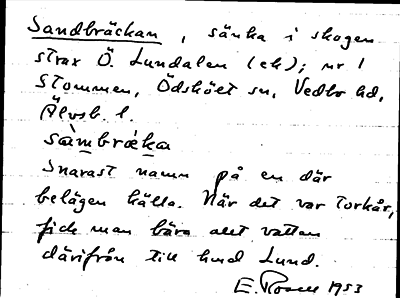 Sandbräckan, sänka i skogen
strax Ö. Lundalen (ek); nr 1
Stommen, Ödsköet sn, Vedbo hd,
Älvsb. l.
sàmbrǽka
Snarast namn på en där
belägen källa. När det var torkår,
fick man bära allt vatten
därifrån till Lund.
E. Rosell 1953